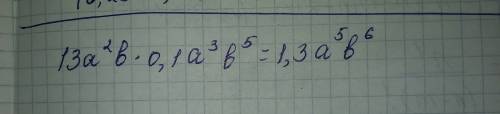 13a²b · 0,1a³b⁵ = 1,3a⁵b⁶